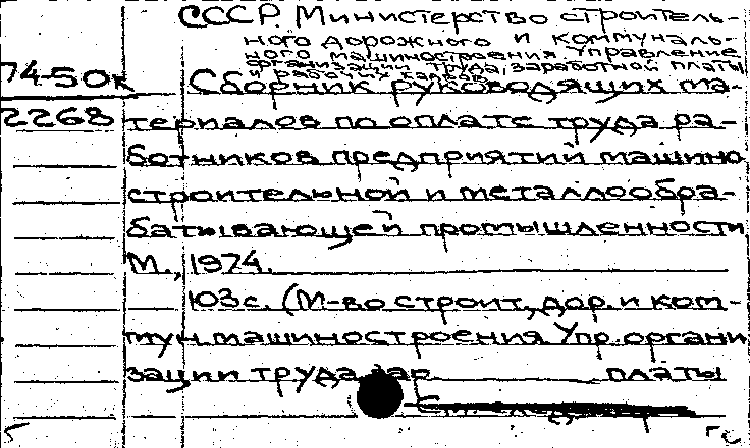 СССР. Министерство строитель-
ного дорожного и коммуналь-
ного машиностроения. Управление
организации труда, заработной платы
и рабочих кадров.
74-50к Сборник руководящих ма-
2268 териалов по оплате труда ра-
ботников предприятий машино
строительной и металлообра-
батывающей промышленности
М., 1974.
103 с. (М-во строит., дор. и ком-
мун. машиностроения. Упр. органи
зации труда, зар платы